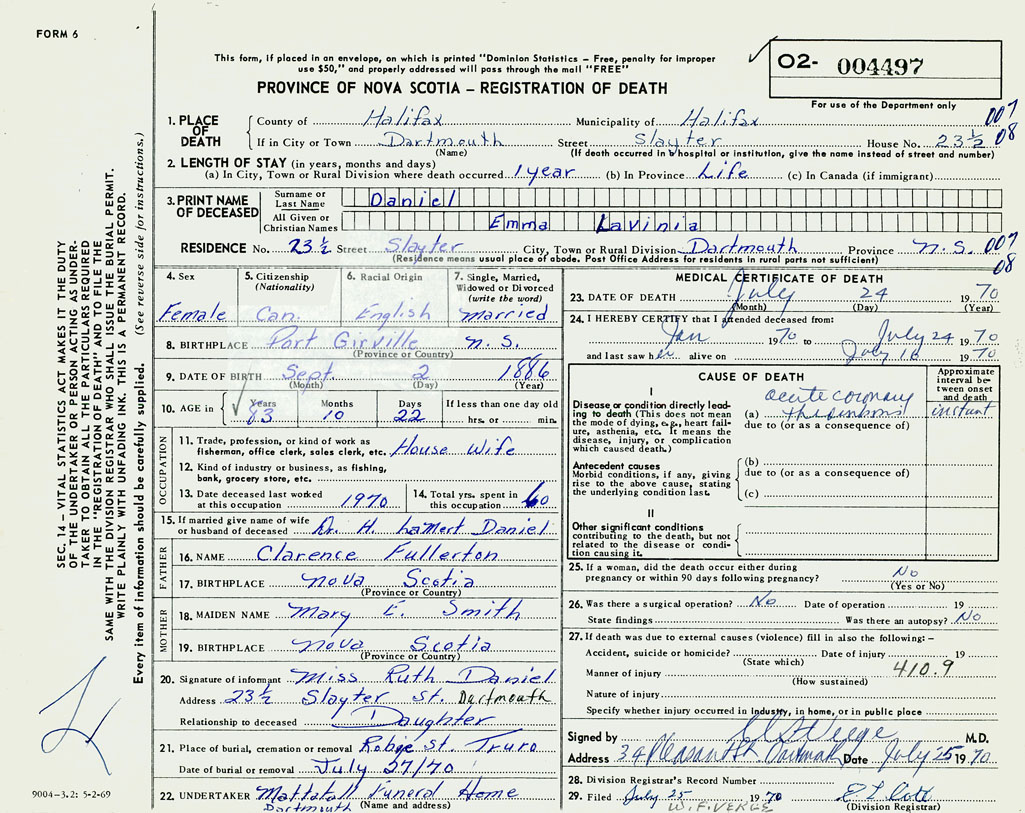 FORM 6
This form, if placed in an envelope, on which is printed "Dominion Statistics – Free, penalty for improper
use $50," and properly addressed will pass through the mail "FREE"
PROVINCE OF NOVA SCOTIA – REGISTRATION OF DEATH
O2- 004497
For use of the Department only
007
08
1. PLACE OF DEATH { County of Halifax Municipality of Halifax
If in City or Town Dartmouth Street Slayter House No. 23½
(Name) (If death occurred in hospital or institution, give the name instead of street and number)
2. LENGTH OF STAY (in years, months and days)
(a) In City, Town or Rural Division where death occurred 1 year (b) In Province Life (c) In Canada (if immigrant)
3. PRINT NAME OF DECEASED { Surname or Last Name Daniel
All Given or Christian Names Emma Lavinia
RESIDENCE No. 23½ Street Slayter City, Town or Rural Division Dartmouth Province N.S. 007
08
(Residence means usual place of abode. Post Office Address for residents in rural parts not sufficient)
4. Sex Female
5. Citizenship (Nationality) Can.
6. Racial Origin English
7. Single, Married, Widowed or Divorced (write the word) Married
8. BIRTHPLACE Port Girville N.S.
(Province or Country)
9. DATE OF BIRTH Sept. 2 1886
(Month) (Day) (Year)
10. AGE in { Years 83 Months 10 Days 22 If less than one day old
hrs. or min.
OCCUPATION
11. Trade, profession, or kind of work as
fisherman, office clerk, sales clerk, etc. House Wife
12. Kind of industry or business, as fishing,
bank, grocery store, etc.
13. Date deceased last worked at this occupation 1970
14. Total yrs. spent in this occupation 60
15. If married give name of wife
or husband of deceased Dr. H. LaMert Daniel
FATHER
16. NAME Clarence Fullerton
17. BIRTHPLACE Nova Scotia
(Province or Country)
MOTHER
18. MAIDEN NAME Mary E. Smith
19. BIRTHPLACE Nova Scotia
(Province or Country)
20. Signature of informant Miss Ruth Daniel
Address 23½ Slayter St. Dartmouth
Relationship to deceased Daughter
21. Place of burial, cremation or removal Robie St. Truro
Date of burial or removal July 27/70
22. UNDERTAKER Mattatall Funeral Home
Dartmouth (Name and address)
MEDICAL CERTIFICATE OF DEATH
23. DATE OF DEATH July 24 1970
(Month) (Day) (Year)
24. I HEREBY CERTIFY that I attended deceased from:
Jan 1970 to July 24 1970
and last saw her alive on July 16 1970
CAUSE OF DEATH
Approximate interval between onset and death
I
Disease or condition directly leading to death (This does not mean the mode of dying, e.g., heart failure, asthenia, etc. It means the disease, injury, or complication which caused death.)
acute coronary
(a) thrombosis instant
due to (or as a consequence of)
Antecedent causes
Morbid conditions, if any, giving rise to the above cause, stating the underlying condition last.
(b)
due to (or as a consequence of)
(c)
II
Other significant conditions
contributing to the death, but not related to the disease or condition causing it.
25. If a woman, did the death occur either during
pregnancy or within 90 days following pregnancy? No
(Yes or No)
26. Was there a surgical operation? No Date of operation 19
State findings Was there an autopsy? No
27. If death was due to external causes (violence) fill in also the following: –
Accident, suicide or homicide? Date of injury 19
(State which)
Manner of injury 410.9
(How sustained)
Nature of injury
Specify whether injury occurred in Industry, in home, or in public place
Signed by M.D.
Address 34 Pleasant St Dartmouth Date July 25 1970
28. Division Registrar's Record Number
29. Filed July 25 1970
W.F. VERGE (Division Registrar)
SEC. 14 – VITAL STATISTICS ACT MAKES IT THE DUTY
OF THE UNDERTAKER OR PERSON ACTING AS UNDER-
TAKER TO OBTAIN ALL THE PARTICULARS REQUIRED
IN THE "REGISTRATION OF DEATH" AND TO FILE THE
SAME WITH THE DIVISION REGISTRAR WHO SHALL ISSUE THE BURIAL PERMIT.
WRITE PLAINLY WITH UNFADING INK. THIS IS A PERMANENT RECORD.
Every item of information should be carefully supplied. (See reverse side for instructions.)
9004-3.2: 5-2-69